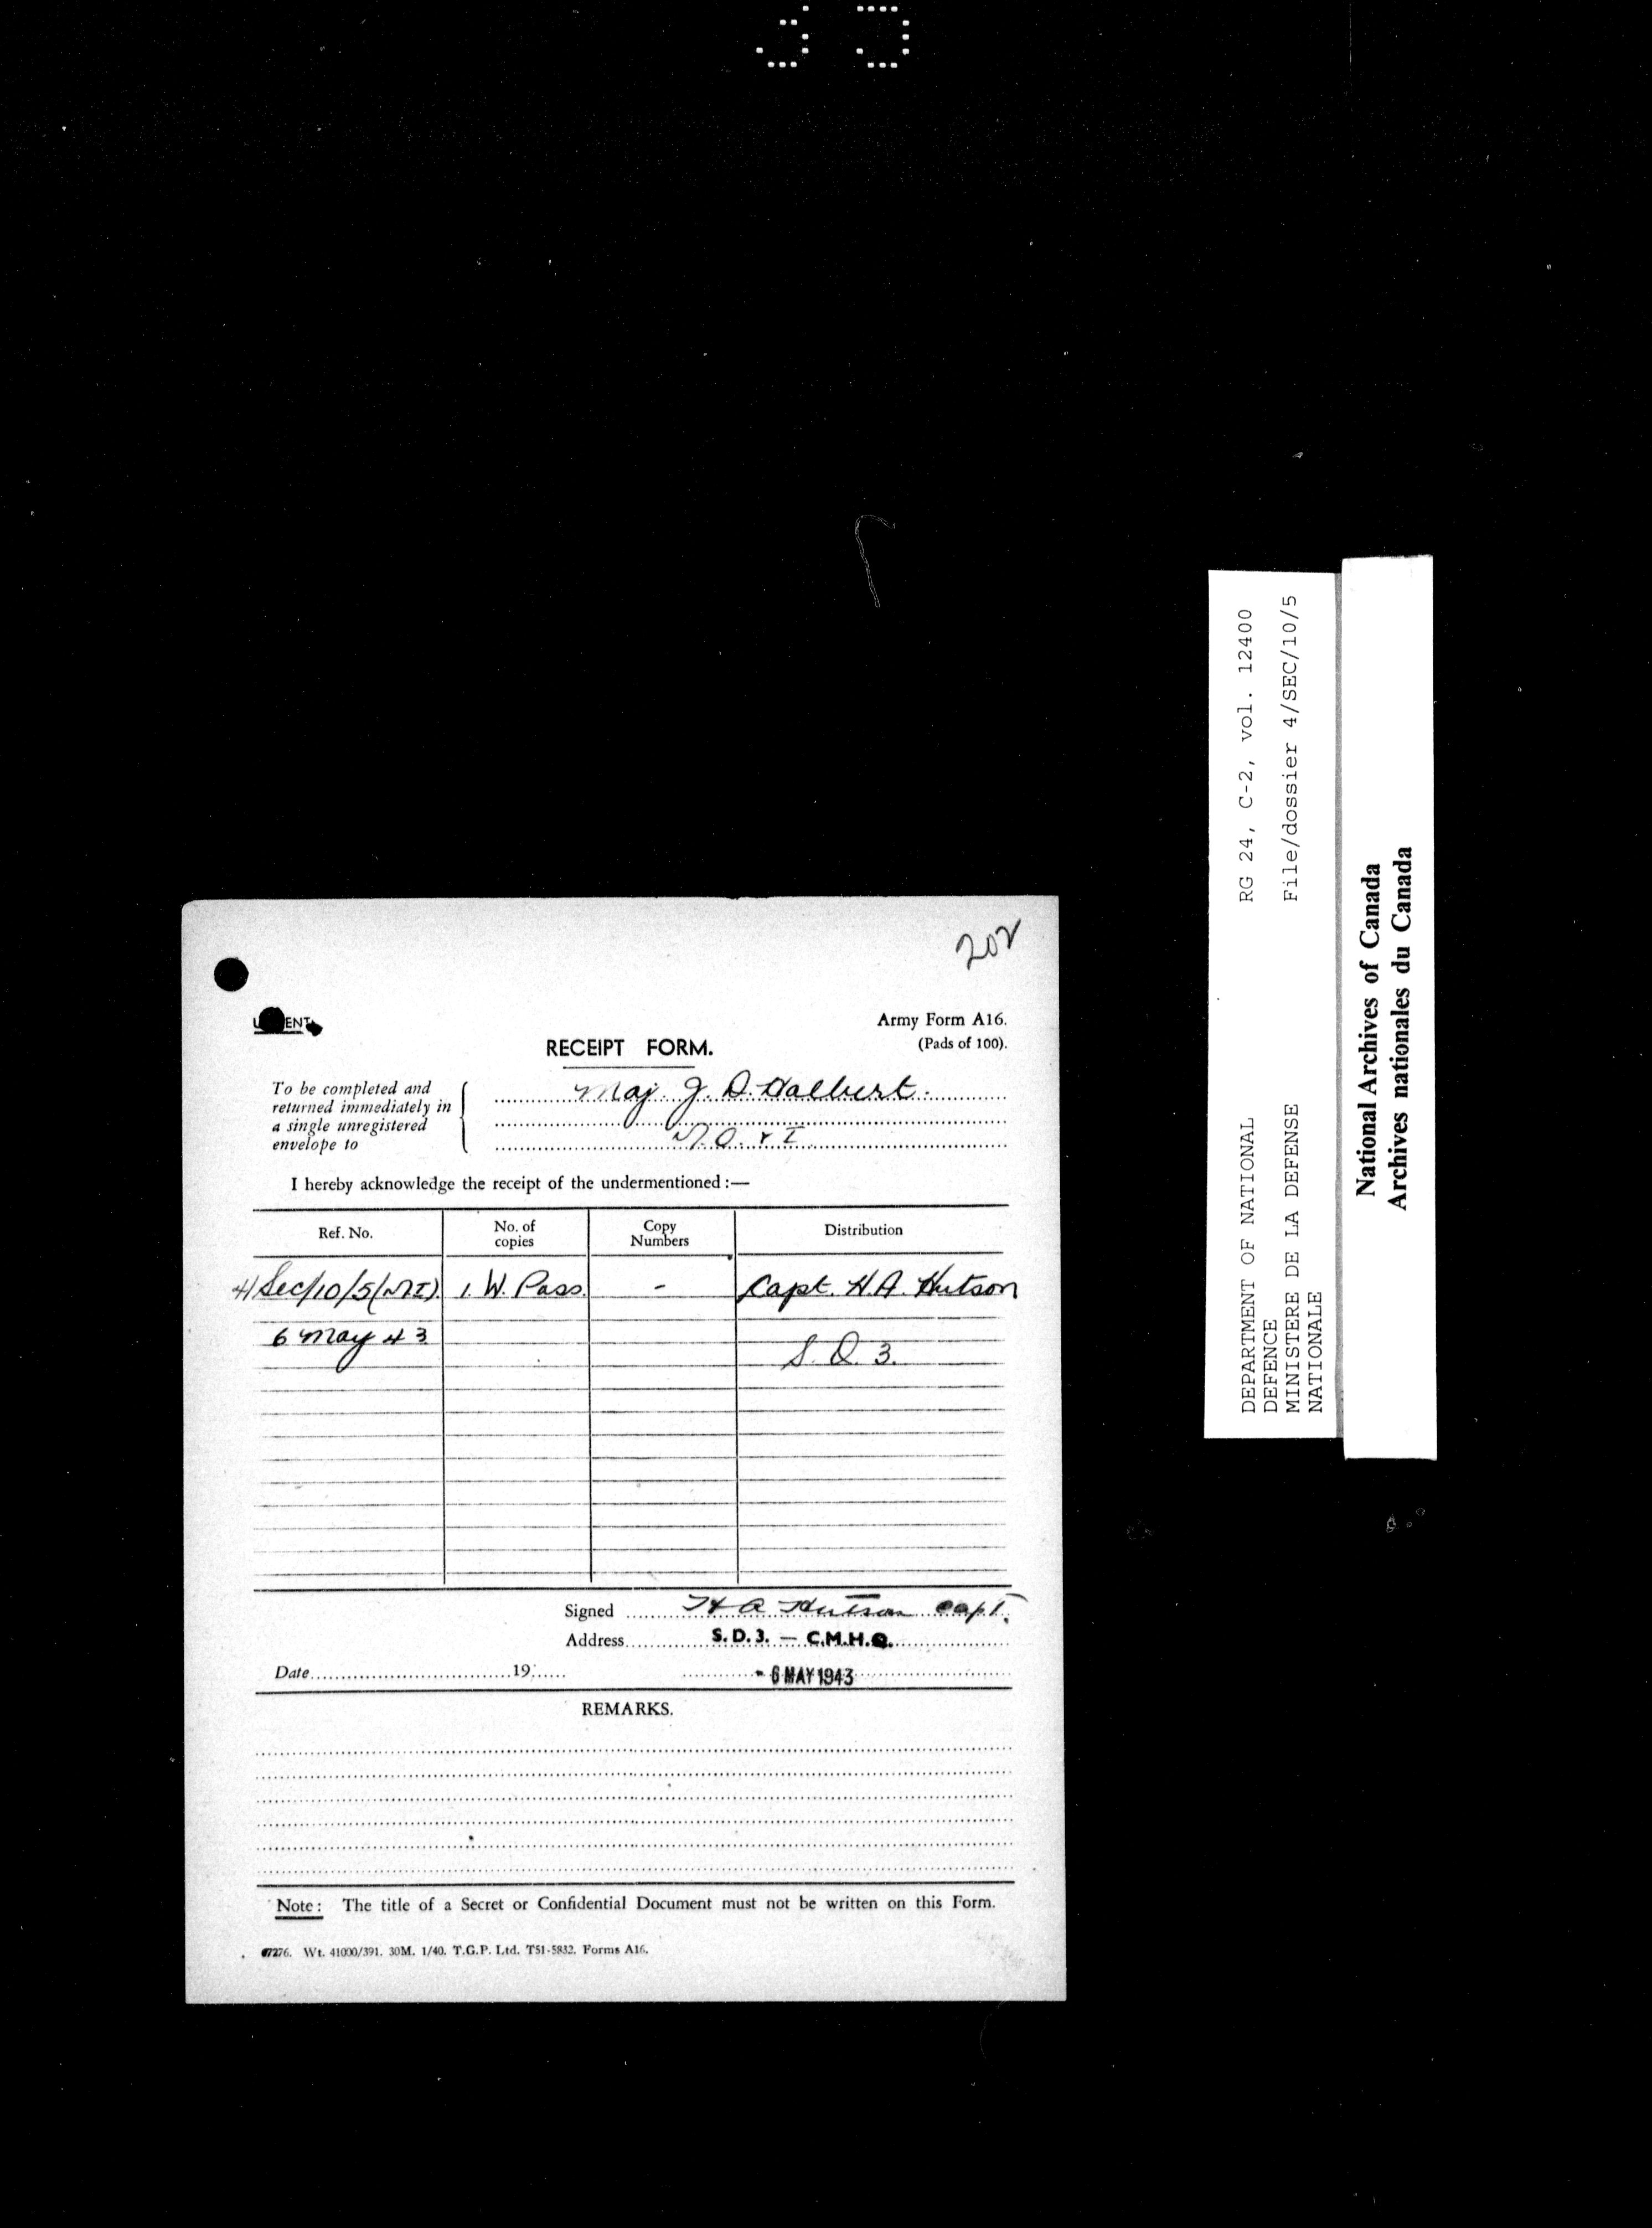 202
Army Form A16.
(Pads of 100).
RECEIPT FORM.
To be completed and
returned immediately in
a single unregistered
envelope to
Maj. J. D. Halbert.
M.O. & I.
I hereby acknowledge the receipt of the undermentioned :—
Ref. No. No. of copies Copy Numbers Distribution
4/Sec/10/5(MI). 1. W. Pass. - Capt. H.A. Hutson
6 May 43
S. D. 3.
Signed H A Hutson Capt.
Address S. D. 3. — C.M.H.Q.
Date 19
- 6 MAY 1943
REMARKS.
Note : The title of a Secret or Confidential Document must not be written on this Form.
Wt. 41000/391. 30M. 1/40. T.G.P. Ltd. T51-5832. Forms A16.
DEPARTMENT OF NATIONAL RG 24, C-2, vol. 12400
DEFENCE
MINISTERE DE LA DEFENSE File/dossier 4/SEC/10/5
NATIONALE
National Archives of Canada
Archives nationales du Canada